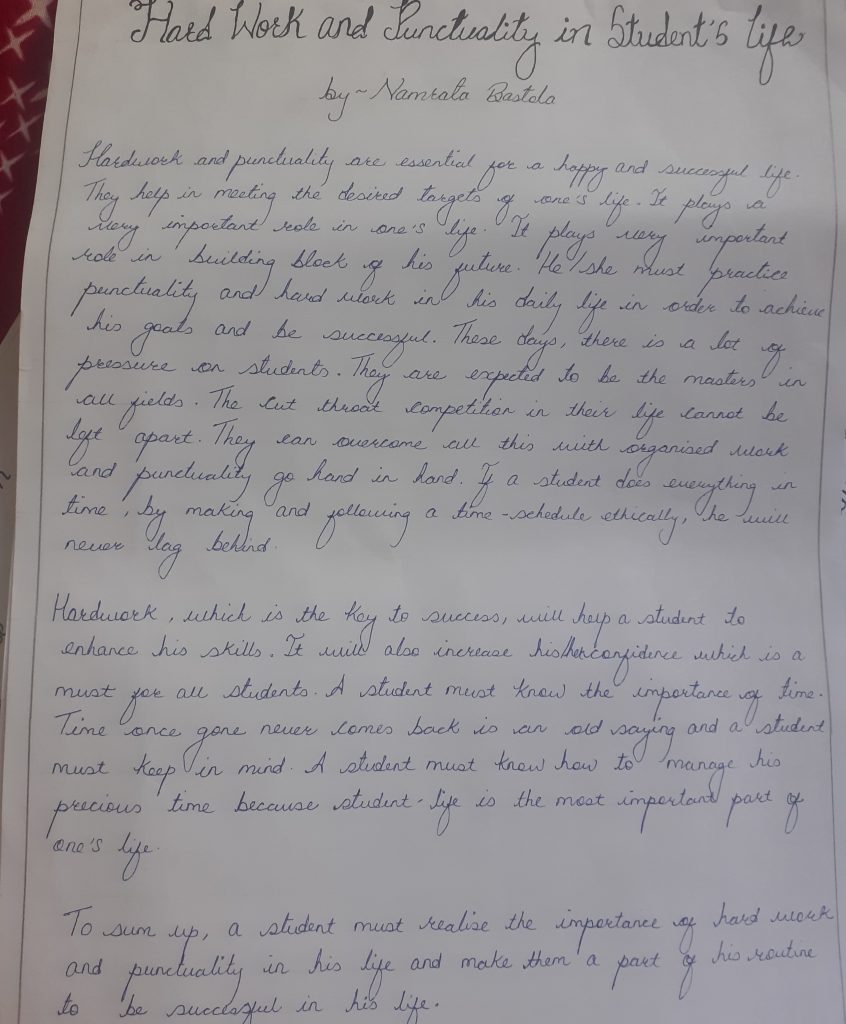 Hard Work and Punctuality in Student's life
by~ Namrata Bastola
Hardwork and punctuality are essential for a happy and successful life.
They help in meeting the desired targets of one's life. It plays a
very important role in one's life. It plays very important
role in building block of his future. He/she must practice
punctuality and hard work in his daily life in order to achieve
his goals and be successful. These days, there is a lot of
pressure on students. They are expected to be the masters in
all fields. The cut throat competition in their life cannot be
left apart. They can overcome all this with organised work
and punctuality go hand in hand. If a student does everything in
time, by making and following a time-schedule ethically, he will
never lag behind.
Hardwork, which is the key to success, will help a student to
enhance his skills. It will also increase his/her confidence which is a
must for all students. A student must know the importance of time.
Time once gone never comes back is an old saying and a student
must keep in mind. A student must know how to manage his
precious time because student-life is the most important part of
one's life.
To sum up, a student must realise the importance of hard work
and punctuality in his life and make them a part of his routine
to be successful in his life.